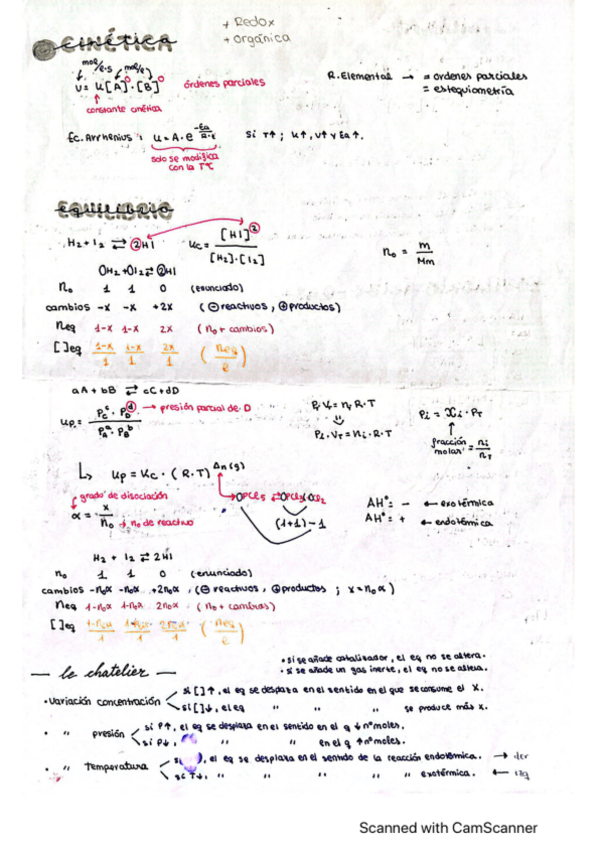 + Redox
CINÉTICA
+ orgánica
mol/l·s (mol/l)
v = k[A]⁰·[B]⁰ órdenes parciales
constante cinética
R. Elemental → = ordenes parciales
= estequiometría
Ec. Arrhenius: k = A·e^(-Ea/R·T) si T↑; k↑, v↑ y Ea↑.
solo se modifica
con la Tª
EQUILIBRIO
H₂ + I₂ ⇄ 2HI Kc = [HI]²/[H₂]·[I₂]
n₀ = m/Mm
0H₂ + 0I₂ ⇄ 2HI
n₀ 1 1 0 (enunciado)
cambios -x -x +2x (⊖ reactivos, ⊕ productos)
neq 1-x 1-x 2x (n₀ + cambios)
[ ]eq 1-x/1 1-x/1 2x/1 (neq/e)
aA + bB ⇄ cC + dD
Kp = Pc^c · PD^d / PA^a · PB^b → presión parcial de D
PT·VT = nT·R·T
Pi·VT = ni·R·T
Pi = Xi · PT
fracción molar = ni/nT
↳ Kp = Kc · (R·T)^Δn(g)
grado de disociación
α = x/n₀ → n₀ de reactivo
(1+1)-1
AH° = - ← exotérmica
AH° = + ← endotérmica
H₂ + I₂ ⇄ 2HI
n₀ 1 1 0 (enunciado)
cambios -n₀α -n₀α +2n₀α (⊖ reactivos, ⊕ productos; x = n₀α)
neq 1-n₀α 1-n₀α 2n₀α (n₀ + cambios)
[ ]eq 1-n₀α/1 1-n₀α/1 2n₀α/1 (neq/e)
• si se añade catalizador, el eq no se altera.
• si se añade un gas inerte, el eq no se altera.
— le chatelier —
• variación concentración si [ ]↑, el eq se desplaza en el sentido en el que se consume el X.
si [ ]↓, el eq " " " se produce más X.
• " presión si P↑, el eq se desplaza en el sentido en el q ↓ nº moles.
si P↓, " " en el q ↑ nº moles.
• " temperatura el eq se desplaza en el sentido de la reacción endotérmica. → der
si T↓, " " " " " exotérmica. ← izq
Scanned with CamScanner